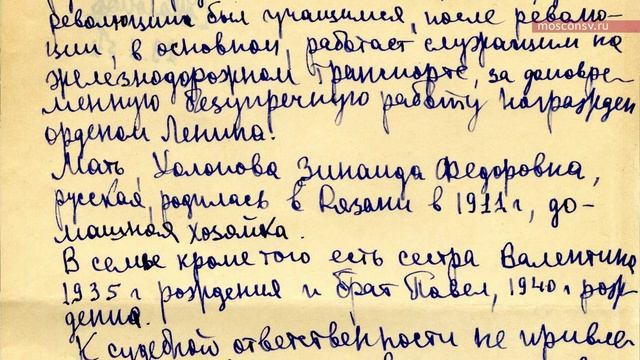 mosconsv.ru
революции был учащимся, после револю-
ции, в основном, работает служащим на
железнодорожном транспорте, за долговре-
менную безупречную работу награжден
орденом Ленина.
Мать, Холопова Зинаида Федоровна,
русская, родилась в Рязани в 1911 г, до-
машная хозяйка.
В семье кроме того есть сестра Валентина
1935 г рождения и брат Павел, 1940 г рож-
дения.
К судебной ответственности не привле-